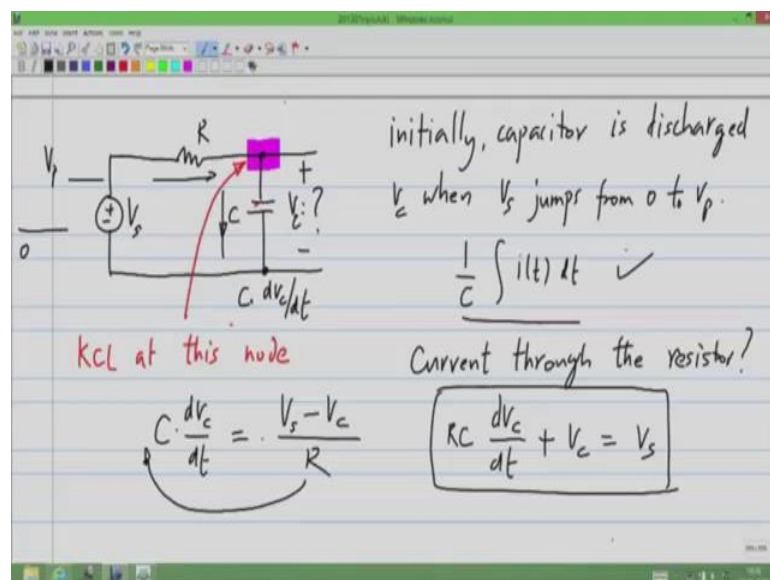 Windows Journal
Page Width
R
V_p
V_s
0
C
V_c : ?
+
−
C. dv_c/dt
initially, capacitor is discharged
V_c when V_s jumps from 0 to V_p.
1/C ∫ i(t) dt ✓
KCL at this node
Current through the resistor?
C. dv_c/dt = . (V_s − V_c)/R
RC dv_c/dt + V_c = V_s